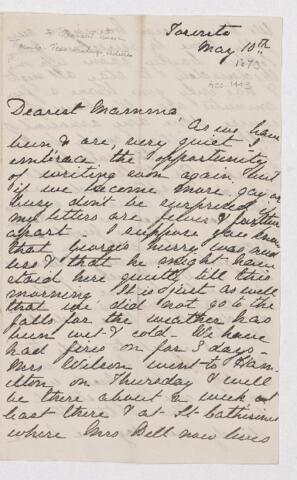 Toronto
May 10th
1873
Dearest Mamma,
As we have
been, & are, very quiet I
embrace the opportunity
of writing soon again but
if we become more gay or
busy don't be surprised
my letters are fewer & further
apart. I suppose you know
that George's hurry was
useless & that he might have
staid here quietly till this
morning. It is just as well
that we did not go to the
falls for the weather has
been wet & cold. We have
had fires on for 3 days.
Mrs Wilson went to Ham-
ilton on Thursday & will
be there about a week at
least there & at St Catherines
where Mrs Bell now lives